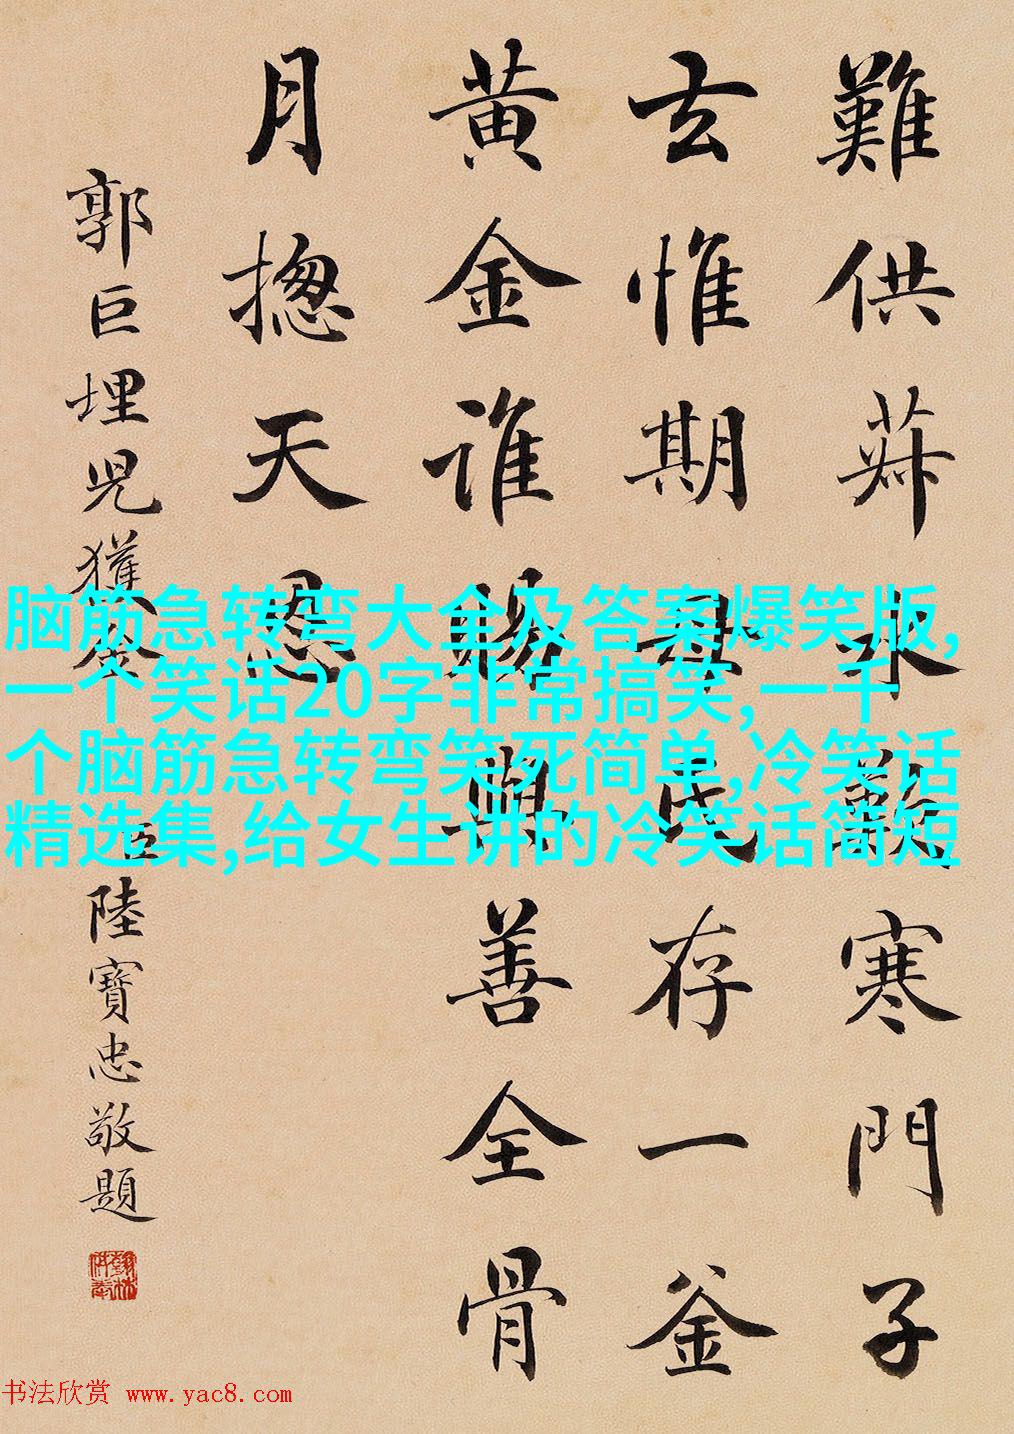 難供菽水歎寒門子
玄惟期母氏存一釜
黄金誰賜與善全骨
月揔天恩
郭巨埋兒獲金
臣陸寶忠敬題
翰林供奉
脑筋急转弯大全及答案爆笑版,
一个笑话20字非常搞笑,一千
个脑筋急转弯笑死简单,冷笑话
精选集,给女生讲的冷笑话简短
书法欣赏 www.yac8.com